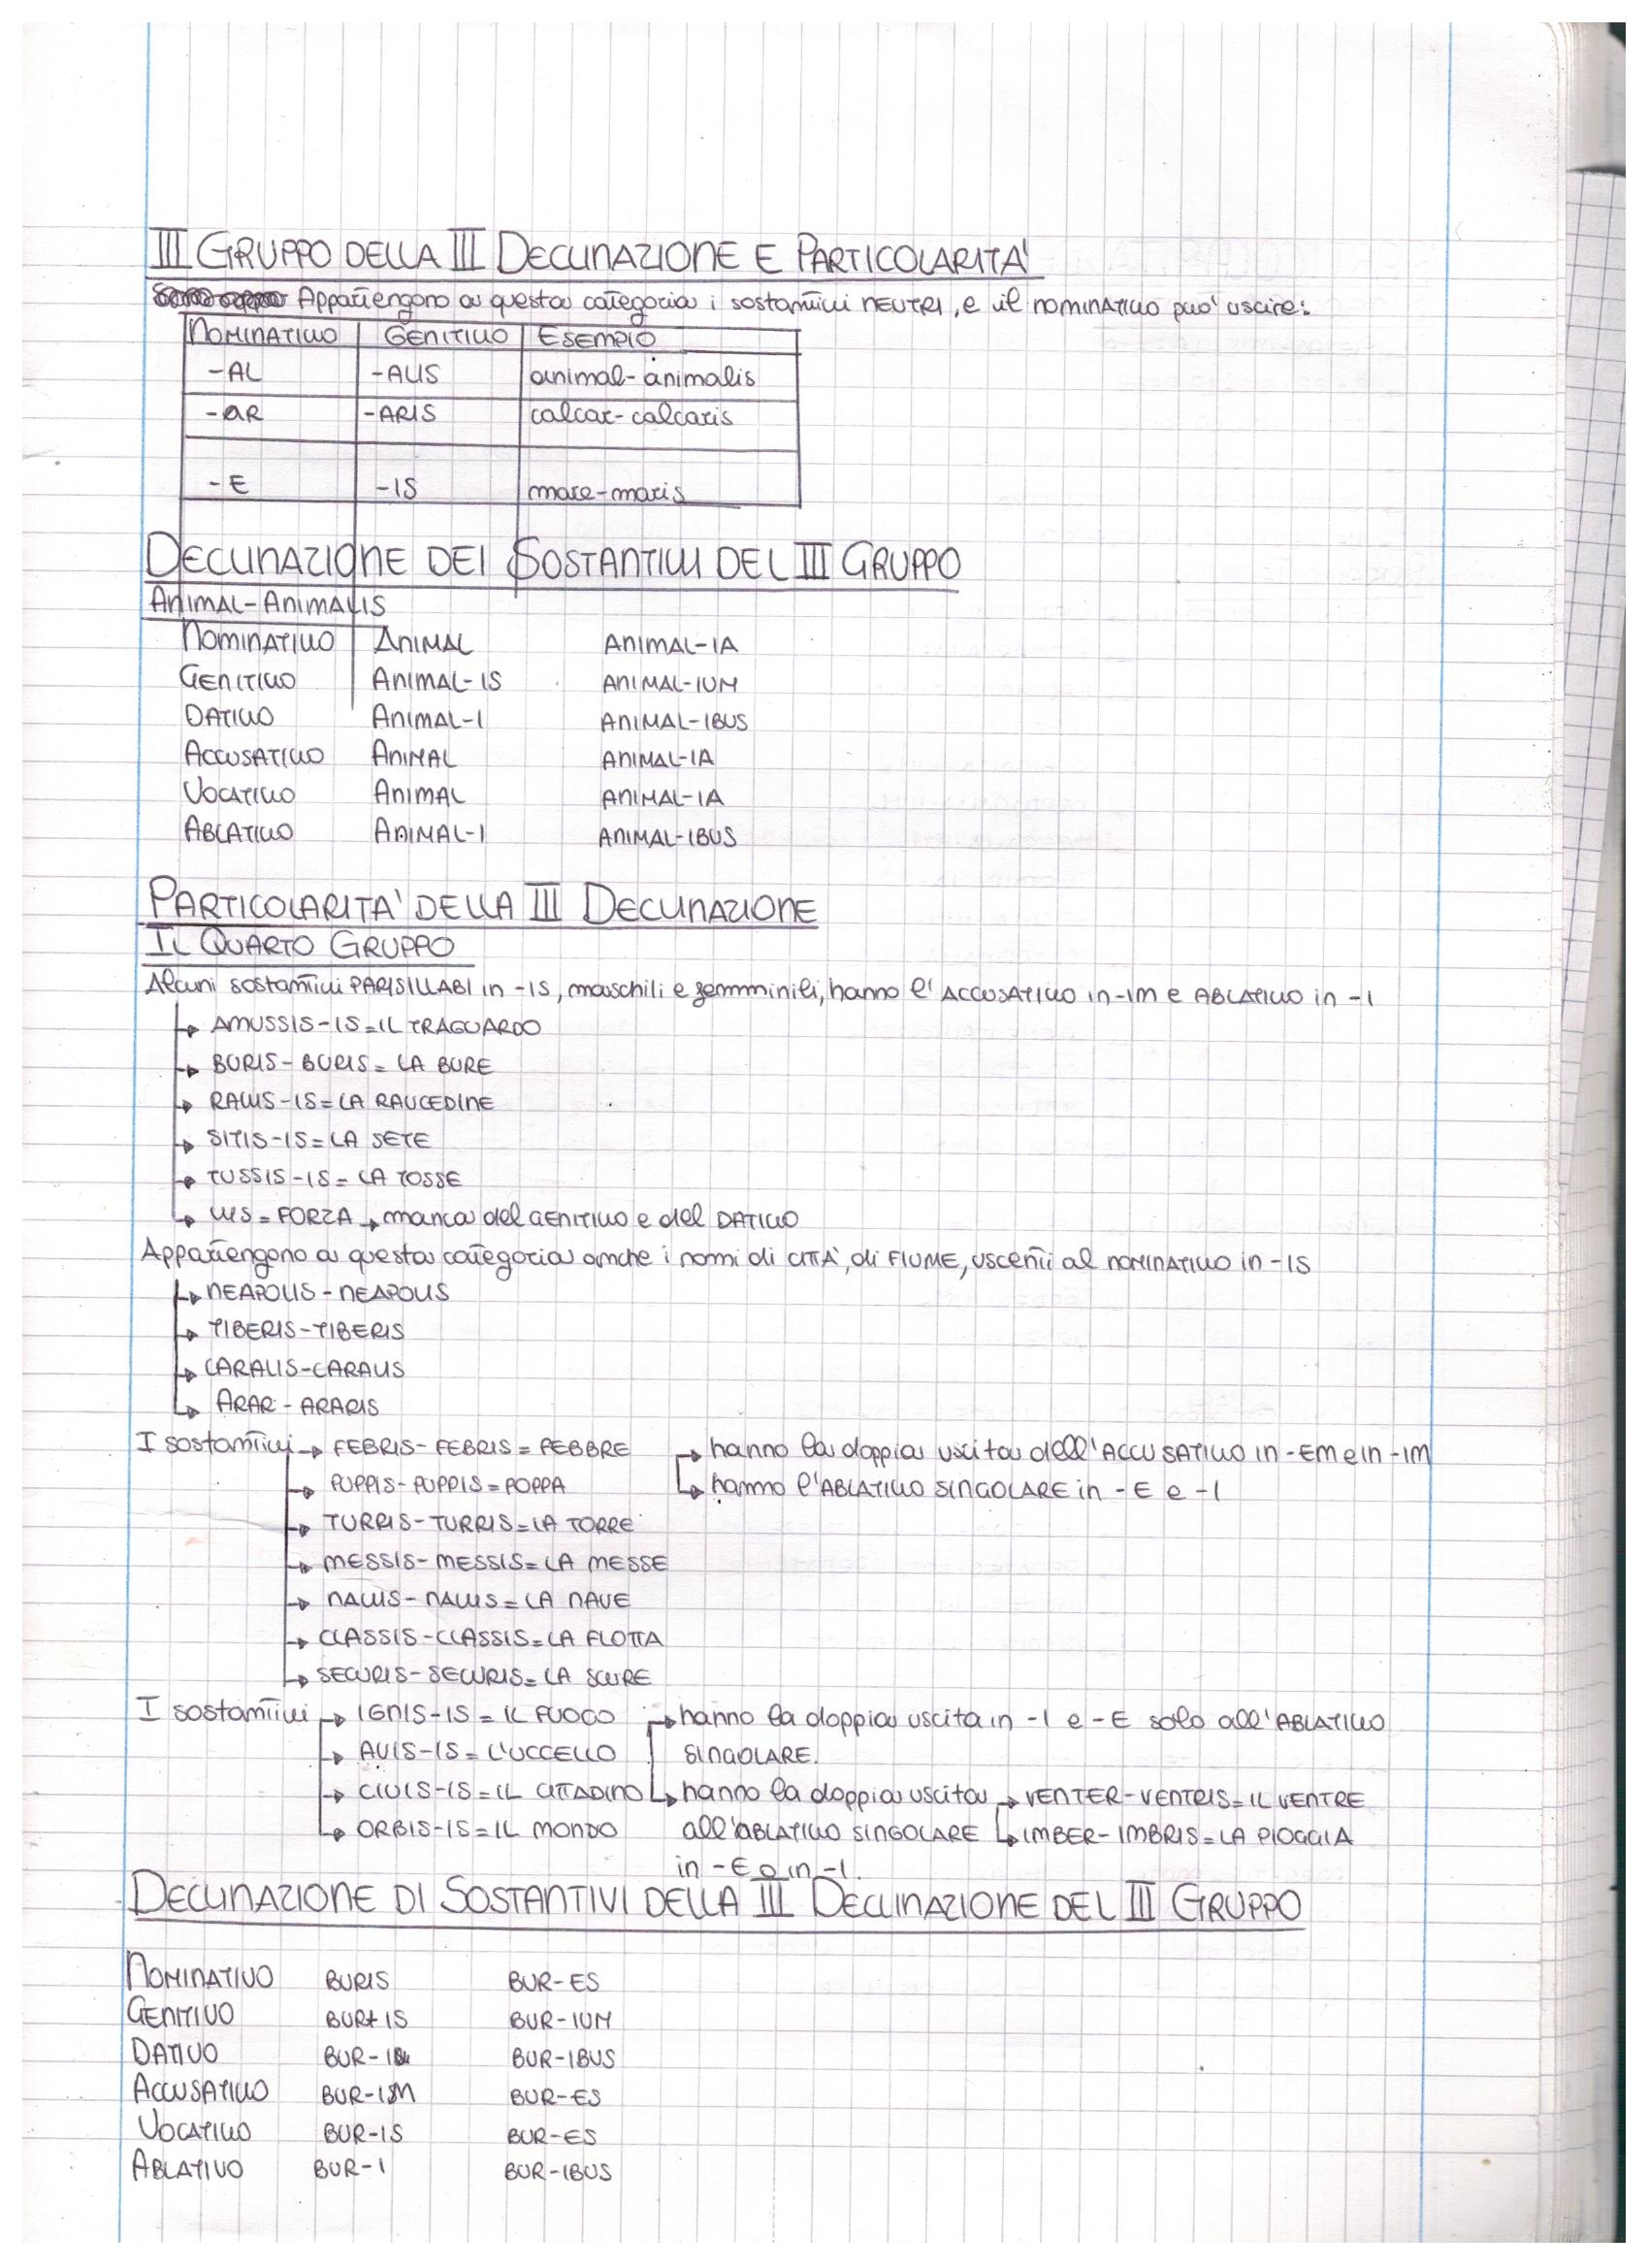 III GRUPPO DELLA III DECLINAZIONE E PARTICOLARITA'
Appartengono a questa categoria i sostantivi NEUTRI, e il nominativo puo' uscire:
NOMINATIVO GENITIVO ESEMPIO
-AL -ALIS animal-animalis
-AR -ARIS calcar-calcaris
-E -IS mare-maris
DECLINAZIONE DEI SOSTANTIVI DEL III GRUPPO
ANIMAL-ANIMALIS
NOMINATIVO ANIMAL ANIMAL-IA
GENITIVO ANIMAL-IS ANIMAL-IUM
DATIVO ANIMAL-I ANIMAL-IBUS
ACCUSATIVO ANIMAL ANIMAL-IA
VOCATIVO ANIMAL ANIMAL-IA
ABLATIVO ANIMAL-I ANIMAL-IBUS
PARTICOLARITA' DELLA III DECLINAZIONE
IL QUARTO GRUPPO
Alcuni sostantivi PARISILLABI in -IS, maschili e femmminili, hanno l'ACCUSATIVO in -IM e ABLATIVO in -I
↳ AMUSSIS-IS=IL TRAGUARDO
↳ BURIS-BURIS=LA BURE
↳ RAVIS-IS=LA RAUCEDINE
↳ SITIS-IS=LA SETE
↳ TUSSIS-IS=LA TOSSE
↳ VIS=FORZA → manca del GENITIVO e del DATIVO
Appartengono a questa categoria anche i nomi di CITTA', di FIUME, uscenti al NOMINATIVO in -IS
↳ NEAPOLIS-NEAPOLIS
↳ TIBERIS-TIBERIS
↳ CARALIS-CARALIS
↳ ARAR-ARARIS
I sostantivi → FEBRIS-FEBRIS=FEBBRE → hanno la doppia uscita dell'ACCUSATIVO in -EM e in -IM
↳ PUPPIS-PUPPIS=POPPA ↳ hanno l'ABLATIVO SINGOLARE in -E e -I
↳ TURRIS-TURRIS=LA TORRE
↳ MESSIS-MESSIS=LA MESSE
↳ NAVIS-NAVIS=LA NAVE
↳ CLASSIS-CLASSIS=LA FLOTTA
↳ SECURIS-SECURIS=LA SCURE
I sostantivi → IGNIS-IS=IL FUOCO → hanno la doppia uscita in -I e -E solo all'ABLATIVO
↳ AVIS-IS=L'UCCELLO SINGOLARE.
↳ CIVIS-IS=IL CITTADINO ↳ hanno la doppia uscita → VENTER-VENTRIS=IL VENTRE
↳ ORBIS-IS=IL MONDO all'ABLATIVO SINGOLARE ↳ IMBER-IMBRIS=LA PIOGGIA
in -E o in -I.
DECLINAZIONE DI SOSTANTIVI DELLA III DECLINAZIONE DEL III GRUPPO
NOMINATIVO BURIS BUR-ES
GENITIVO BUR-IS BUR-IUM
DATIVO BUR-I BUR-IBUS
ACCUSATIVO BUR-IM BUR-ES
VOCATIVO BUR-IS BUR-ES
ABLATIVO BUR-I BUR-IBUS